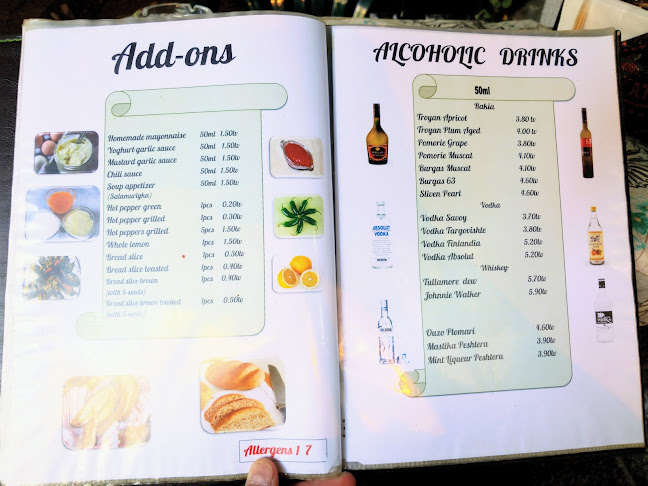 Add-ons
Homemade mayonnaise 50ml 1.50lv
Yoghurt garlic sauce 50ml 1.50lv
Mustard garlic sauce 50ml 1.50lv
Chili sauce 50ml 1.50lv
Soup appetizer 50ml 1.50lv
(Salamurigka)
Hot pepper green 1pcs 0.20lv
Hot pepper grilled 1pcs 0.30lv
Hot peppers grilled 5pcs 1.50lv
Whole lemon 1pcs 1.50lv
Bread slice 1pcs 0.30lv
Bread slice toasted 1pcs 0.40lv
Bread slice brown 1pcs 0.40lv
(with 5 seeds)
Bread slice brown toasted 1pcs 0.50lv
(with 5 seeds)
Allergens 1 7
ALCOHOLIC DRINKS
50ml
Rakia
Troyan Apricot 3.80 lv
Troyan Plum Aged 4.00 lv
Pomorie Grape 3.80lv
Pomorie Muscat 4.10lv
Burgas Muscat 4.10lv
Burgas 63 4.60lv
Sliven Pearl 4.60lv
Vodka
Vodka Savoy 3.70lv
Vodka Targovishte 3.80lv
Vodka Finlandia 5.20lv
Vodka Absolut 5.20lv
Whiskey
Tullamore dew 5.70lv
Johnie Walker 5.90lv
Ouzo Plomari 4.60lv
Mastika Peshtera 3.90lv
Mint Liqueur Peshtera 3.90lv
ABSOLUT
VODKA